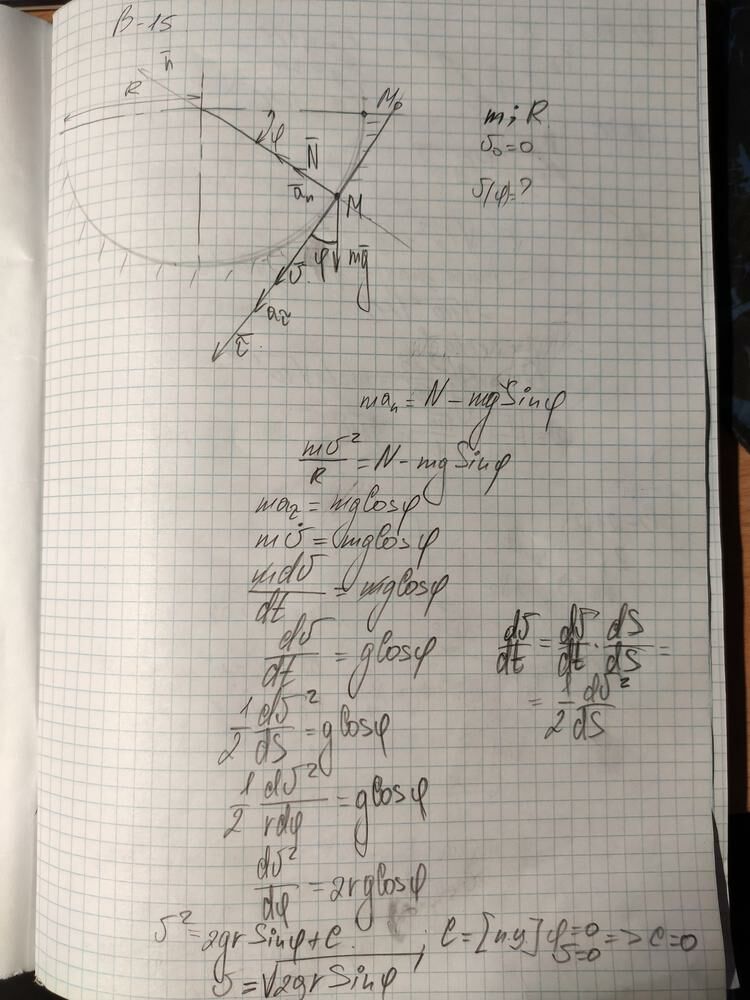 В-15
n̄
R
M₀
φ
N̄
āₙ
M
φ
mḡ
v̄
a_τ
τ̄
m; R
v₀=0
v(φ)=?
maₙ = N - mg Sinφ
mv²/R = N - mg Sinφ
ma_τ = mg Cosφ
mv̇ = mg Cosφ
mdv/dt = mg Cosφ
dv/dt = g Cosφ
dv/dt = dv/dt · dS/dS =
= 1/2 dv²/dS
1/2 dv²/dS = g Cosφ
1/2 dv²/rdφ = g Cosφ
dv²/dφ = 2rg Cosφ
v² = 2gr Sinφ + C ; C = [н.у] φ=0 v=0 => C=0
v = √2gr Sinφ